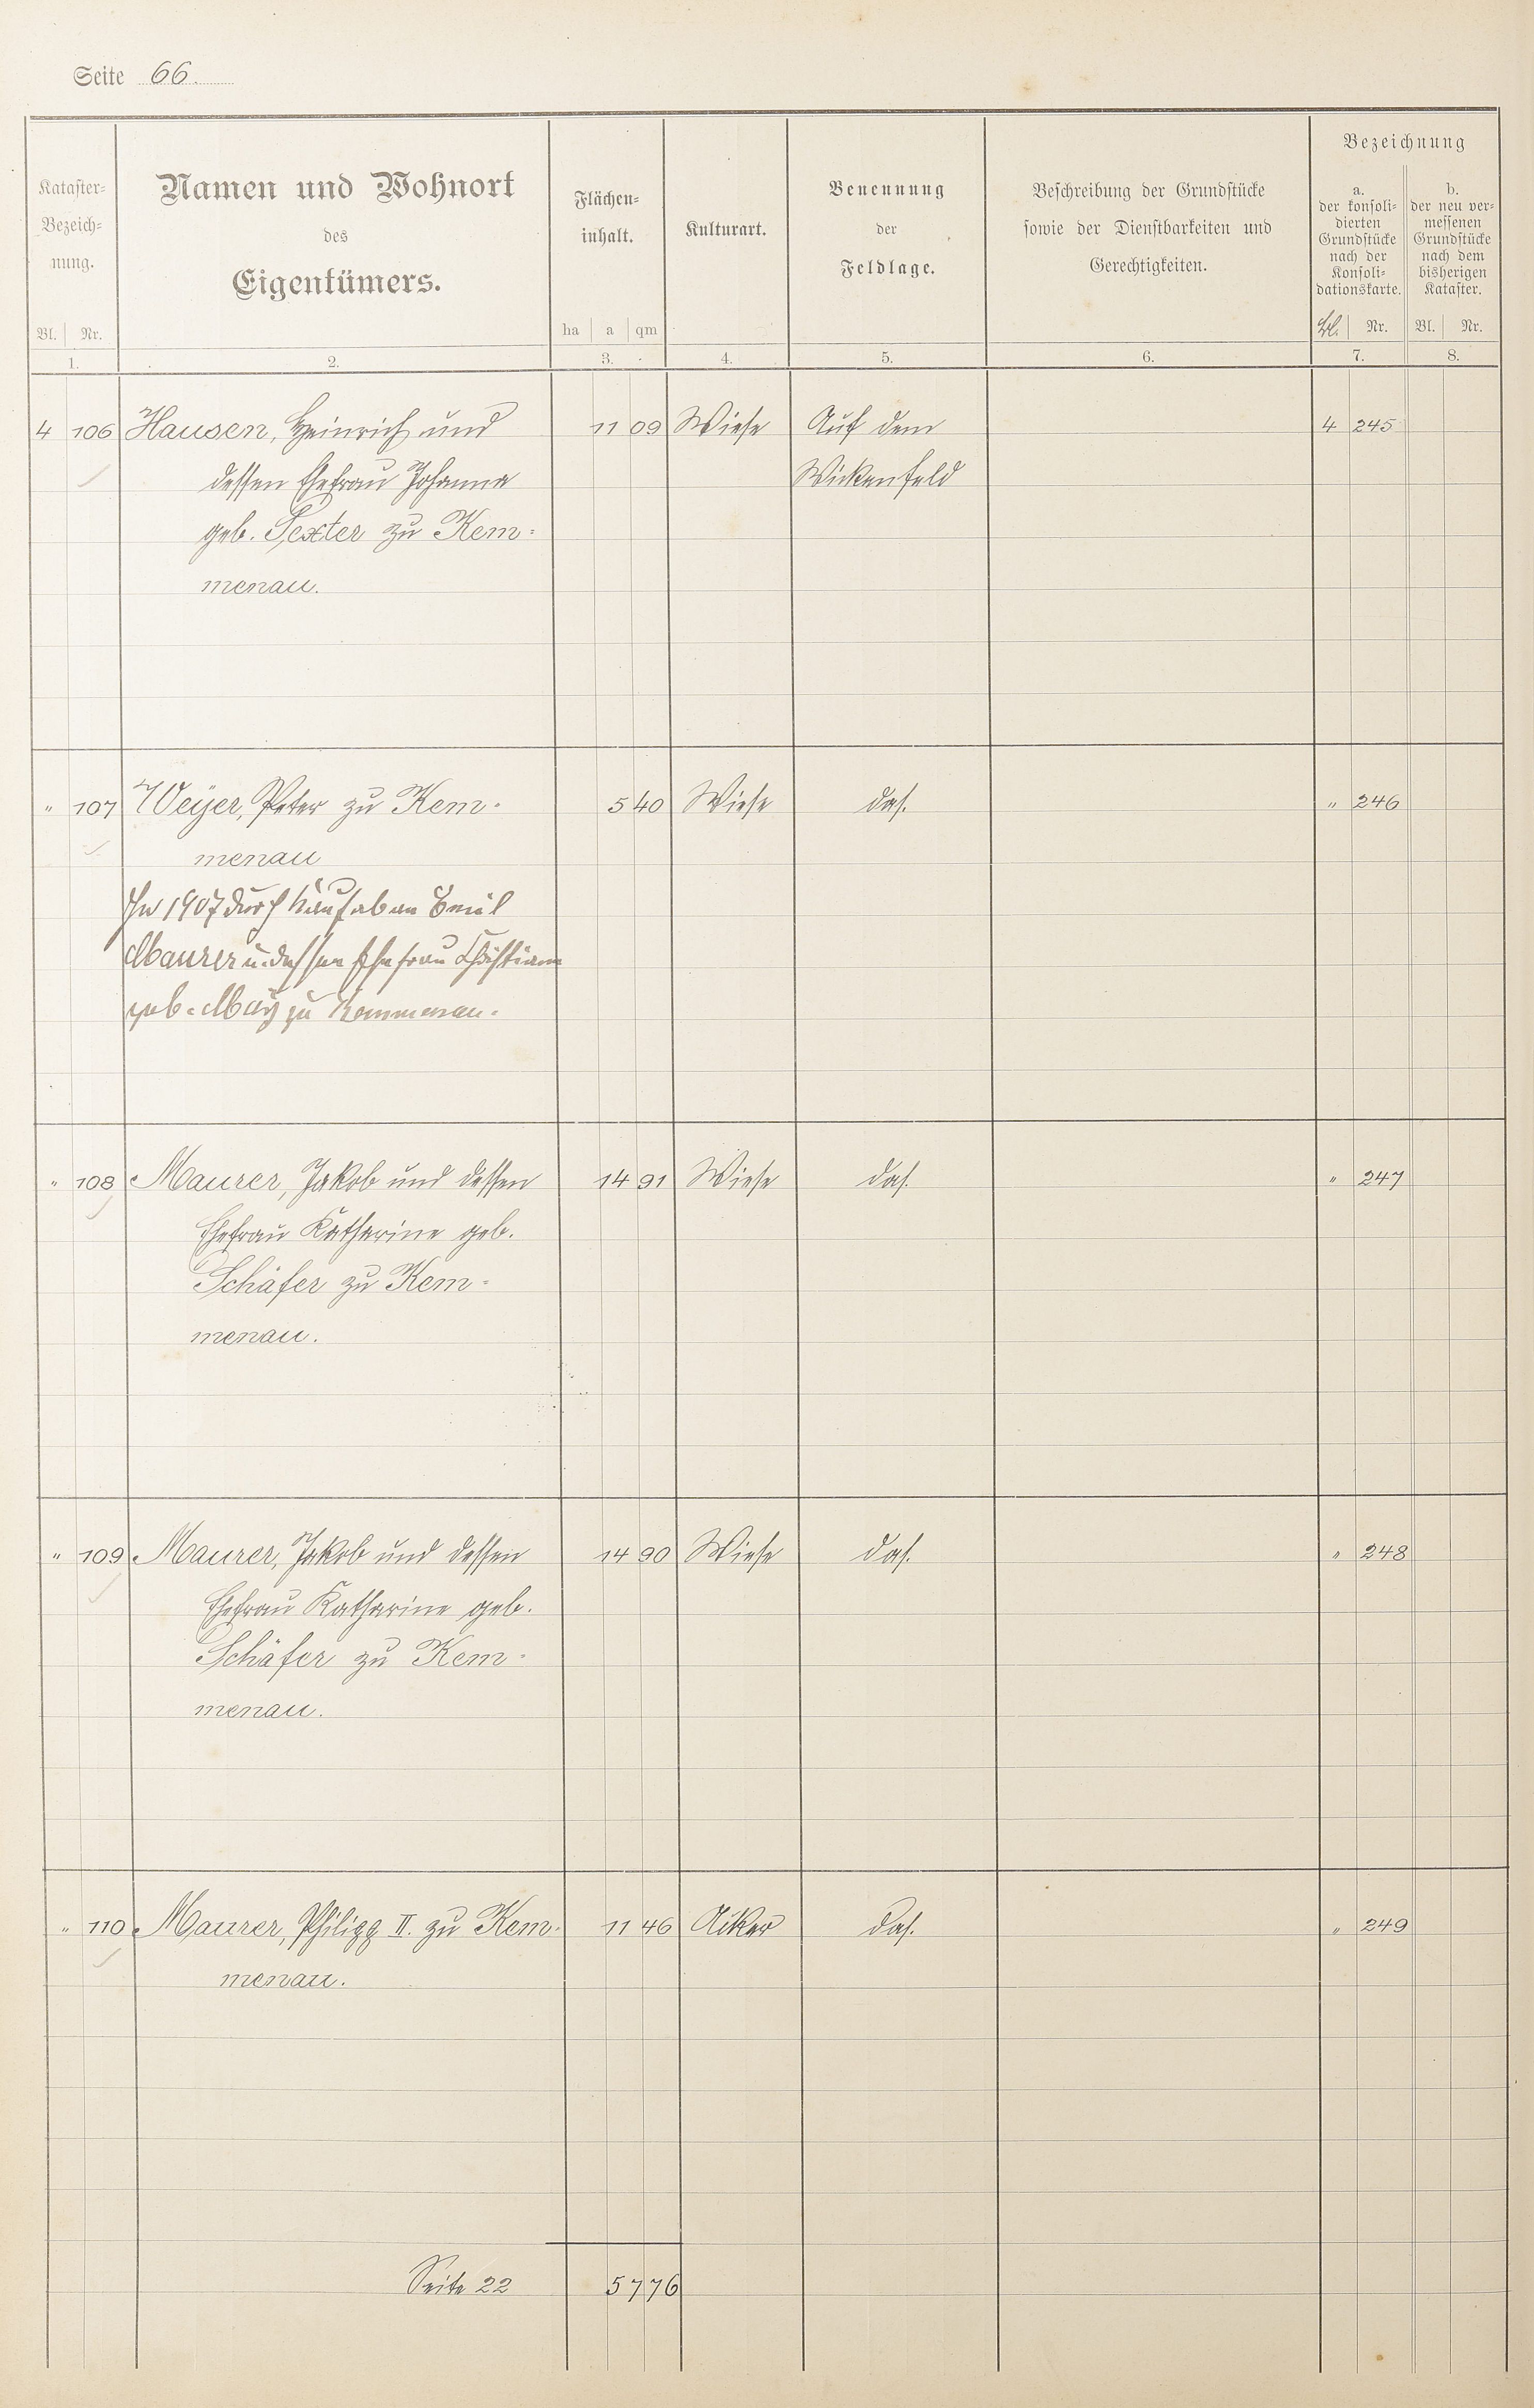 Seite 66.
Kataster-
Bezeich-
nung.
Bl. Nr.
1.
Namen und Wohnort
des
Eigentümers.
2.
Flächen-
inhalt.
ha a qm
3.
Kulturart.
4.
Benennung
der
Feldlage.
5.
Beschreibung der Grundstücke
sowie der Dienstbarkeiten und
Gerechtigkeiten.
6.
Bezeichnung
a.
der konsoli-
dierten
Grundstücke
nach der
Konsoli-
dationskarte.
Bl. Nr.
7.
b.
der neu ver-
messenen
Grundstücke
nach dem
bisherigen
Kataster.
Bl. Nr.
8.
4 106 Hausen, Heinrich und 11 09 Wiese Auf dem 4 245
dessen Ehefrau Johanna Wickenfeld
geb. Sexter zu Kem-
menau.
" 107 Weyer, Peter zu Kem- 5 40 Wiese das. " 246
menau
In 1907 durch Kauf ab an Emil
Maurer u. dessen Ehefrau Christiane
geb. May zu Kemmenau.
" 108 Maurer, Jakob und dessen 14 91 Wiese das. " 247
Ehefrau Katharine geb.
Schäfer zu Kem-
menau.
" 109 Maurer, Jakob und dessen 14 90 Wiese das. " 248
Ehefrau Katharine geb.
Schäfer zu Kem-
menau.
" 110 Maurer, Philipp II. zu Kem- 11 46 Acker das. " 249
menau.
Seite 22 57 76